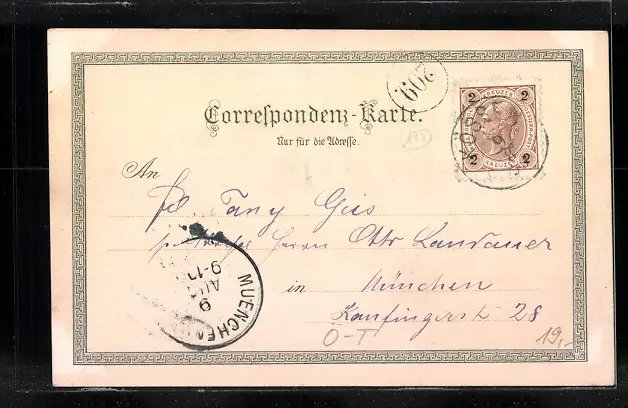 209
Correspondenz-Karte.
Nur für die Adresse.
175
2 KREUZER 2
2 KREUZER 2
An
Frl. Fany Geis
Herrn Otto Landauer
in München
Kaufingerst 28
MUENCHEN
9 AUG
9-10
O-T
19,-